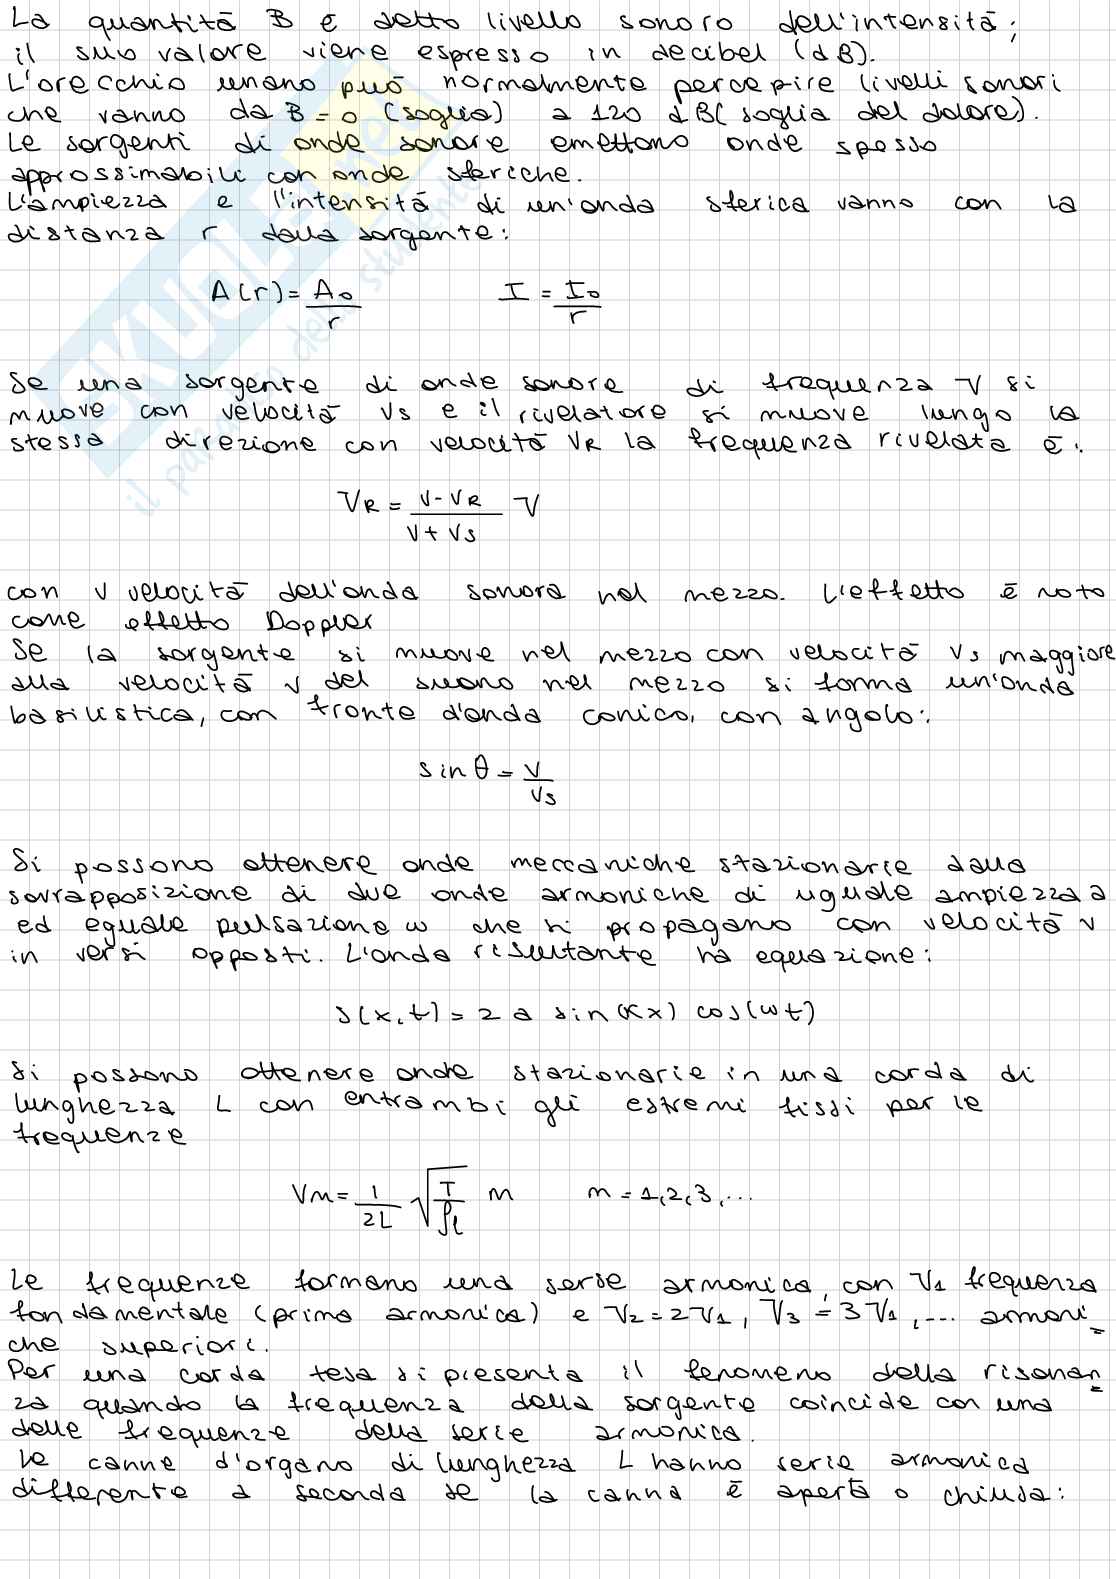 La quantità B è detto livello sonoro dell'intensità;
il suo valore viene espresso in decibel (dB).
L'orecchio umano può normalmente percepire livelli sonori
che vanno da B = 0 (soglia) a 120 dB (soglia del dolore).
Le sorgenti di onde sonore emettono onde spesso
approssimabili con onde sferiche.
L'ampiezza e l'intensità di un'onda sferica vanno con la
distanza r dalla sorgente:
A(r) = A₀/r I = I₀/r
Se una sorgente di onde sonore di frequenza ν si
muove con velocità vs e il rivelatore si muove lungo la
stessa direzione con velocità VR la frequenza rivelata è:
νR = (v - vR)/(v + vs) ν
con v velocità dell'onda sonora nel mezzo. L'effetto è noto
come effetto Doppler
Se la sorgente si muove nel mezzo con velocità vs maggiore
alla velocità v del suono nel mezzo si forma un'onda
basilistica, con fronte d'onda conico, con angolo:
sin θ = v/vs
Si possono ottenere onde meccaniche stazionarie dalla
sovrapposizione di due onde armoniche di uguale ampiezza a
ed eguale pulsazione ω che si propagano con velocità v
in versi opposti. L'onda risultante ha equazione:
s(x,t) = 2 a sin(kx) cos(ωt)
Si possono ottenere onde stazionarie in una corda di
lunghezza L con entrambi gli estremi fissi per le
frequenze
νm = 1/2L √(T/ρl) m m = 1,2,3,...
Le frequenze formano una serie armonica, con ν1 frequenza
fondamentale (prima armonica) e ν2 = 2ν1, ν3 = 3ν1, ... armoni_
che superiori.
Per una corda tesa si presenta il fenomeno della risonan_
za quando la frequenza della sorgente coincide con una
delle frequenze della serie armonica.
Le canne d'organo di lunghezza L hanno serie armonica
differente a seconda se la canna è aperta o chiusa:
SKUOLA.net
il paradiso dello studente